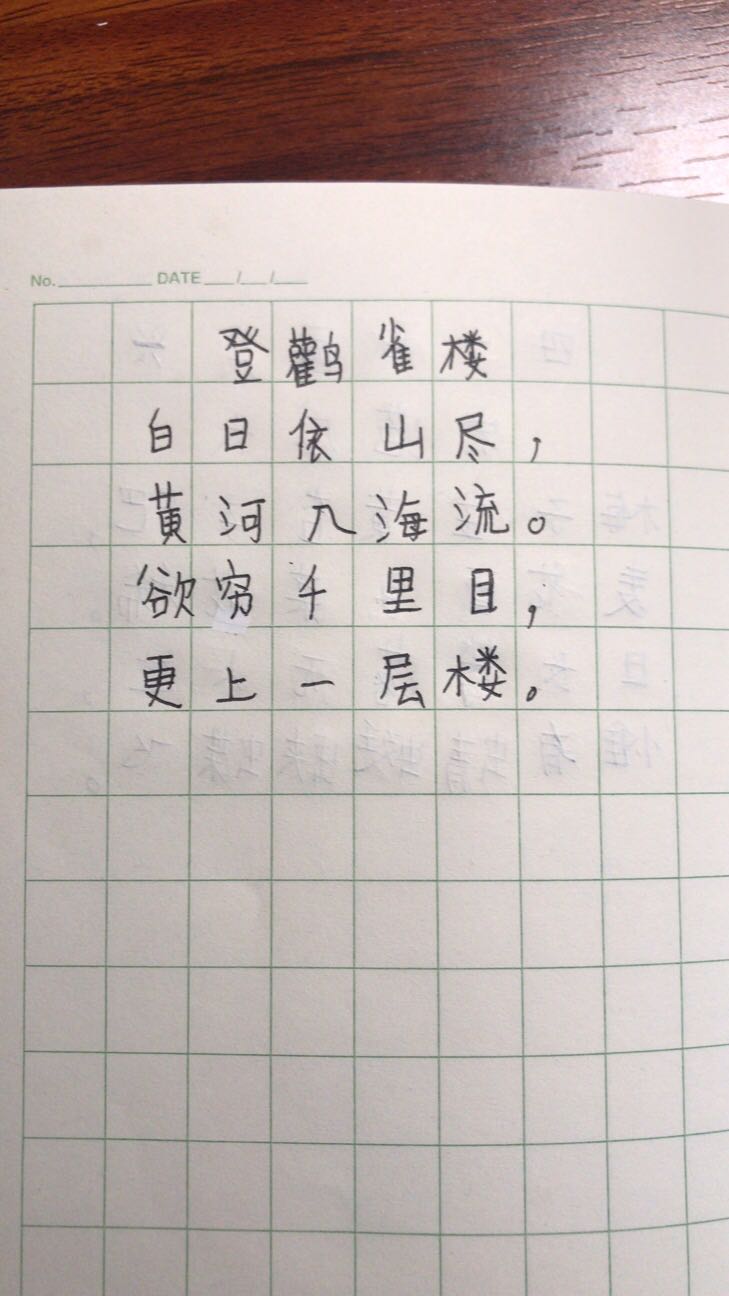 No. DATE / /
登鹳雀楼
白日依山尽，
黄河入海流。
欲穷千里目，
更上一层楼。